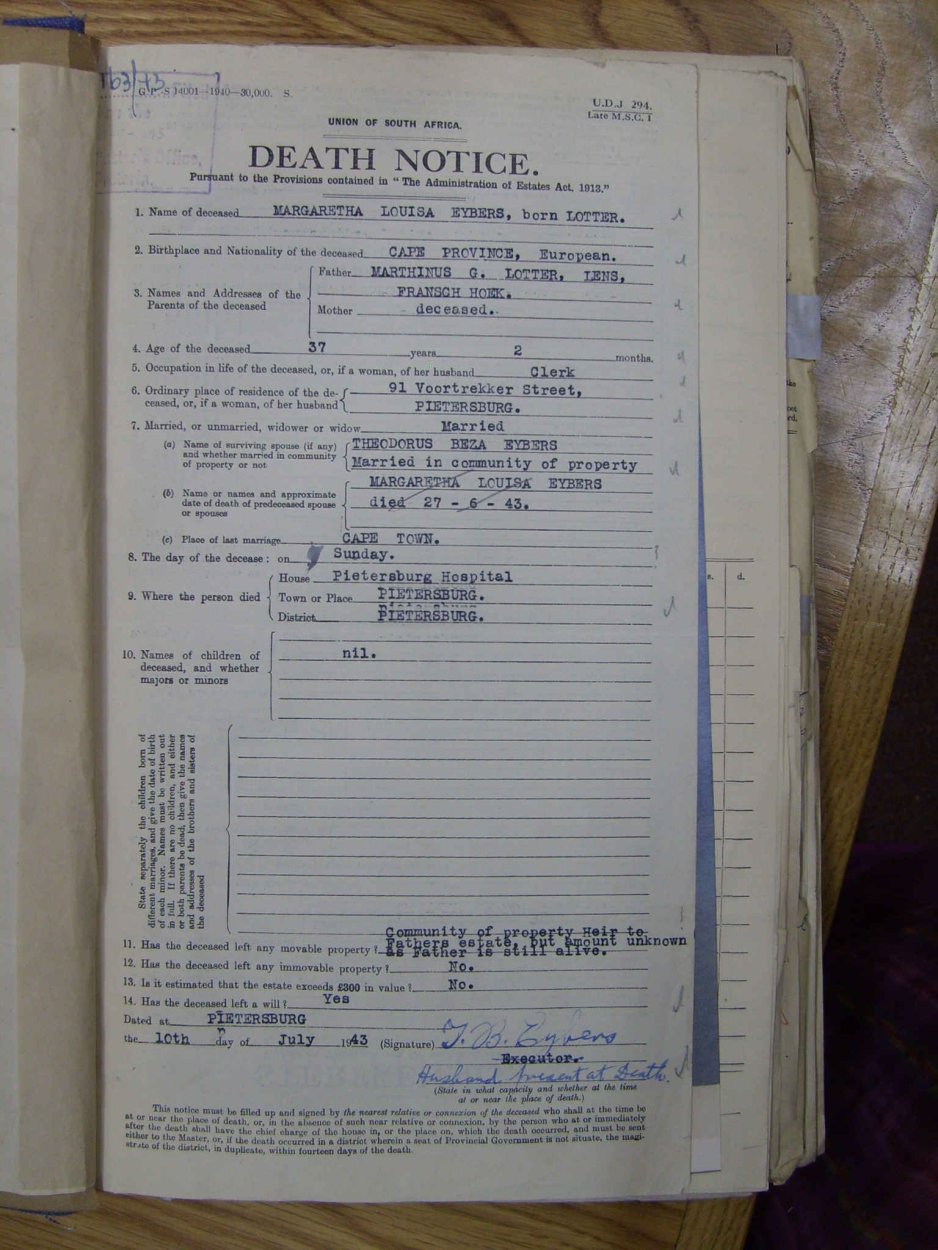 63/43
G.P.-S 14001—1940—30,000. S.
U.D.J 294.
Late M.S.C. 1
UNION OF SOUTH AFRICA.
DEATH NOTICE.
Pursuant to the Provisions contained in "The Administration of Estates Act, 1913."
1. Name of deceased MARGARETHA LOUISA EYBERS, born LOTTER.
2. Birthplace and Nationality of the deceased CAPE PROVINCE, European.
3. Names and Addresses of the Parents of the deceased
Father MARTHINUS G. LOTTER, LENS,
FRANSCH HOEK.
Mother deceased.
4. Age of the deceased 37 years 2 months.
5. Occupation in life of the deceased, or, if a woman, of her husband Clerk
6. Ordinary place of residence of the de- 91 Voortrekker Street,
ceased, or, if a woman, of her husband PIETERSBURG.
7. Married, or unmarried, widower or widow Married
(a) Name of surviving spouse (if any) THEODORUS BEZA EYBERS
and whether married in community
of property or not Married in community of property
MARGARETHA LOUISA EYBERS
(b) Name or names and approximate
date of death of predeceased spouse died 27 - 6 - 43.
or spouses
(c) Place of last marriage CAPE TOWN.
8. The day of the decease: on Sunday.
House Pietersburg Hospital
9. Where the person died Town or Place PIETERSBURG.
District PIETERSBURG.
10. Names of children of nil.
deceased, and whether
majors or minors
State separately the children born of
different marriages, and give the date of birth
of each minor. Names must be written out
in full. If there are no children, and either
or both parents be dead, then give the names
and addresses of the brothers and sisters of
the deceased
Community of property Heir to
11. Has the deceased left any movable property? Fathers estate, but amount unknown
as Father is still alive.
12. Has the deceased left any immovable property? No.
13. Is it estimated that the estate exceeds £300 in value? No.
14. Has the deceased left a will? Yes
Dated at PIETERSBURG
the 10th day of July 1943 (Signature) T. B. Eybers
Executor.
Husband present at Death.
(State in what capacity and whether at the time
at or near the place of death.)
This notice must be filled up and signed by the nearest relative or connexion of the deceased who shall at the time be
at or near the place of death, or, in the absence of such near relative or connexion, by the person who at or immediately
after the death shall have the chief charge of the house in, or the place on, which the death occurred, and must be sent
either to the Master, or, if the death occurred in a district wherein a seat of Provincial Government is not situate, the magi-
strate of the district, in duplicate, within fourteen days of the death.
s. d.